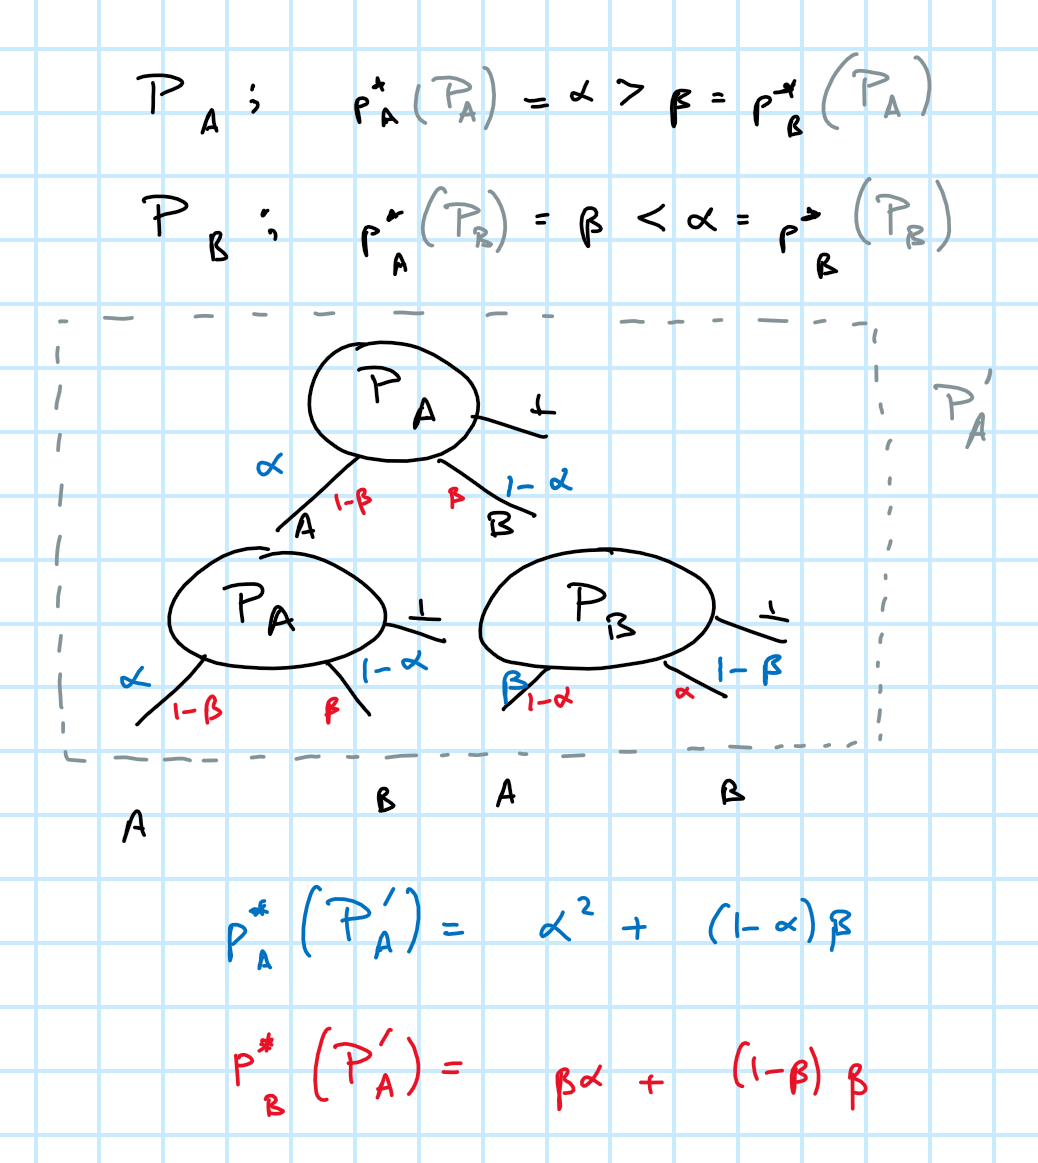 P_A ; p*_A (P_A) = α > β = p*_B (P_A)
P_B ; p*_A (P_B) = β < α = p*_B (P_B)
P_A ⊥
P'_A
α 1-β β 1-α
A B
P_A ⊥ P_B ⊥
α 1-β β 1-α β 1-α α 1-β
A B A B
p*_A (P'_A) = α² + (1-α) β
p*_B (P'_A) = βα + (1-β) β